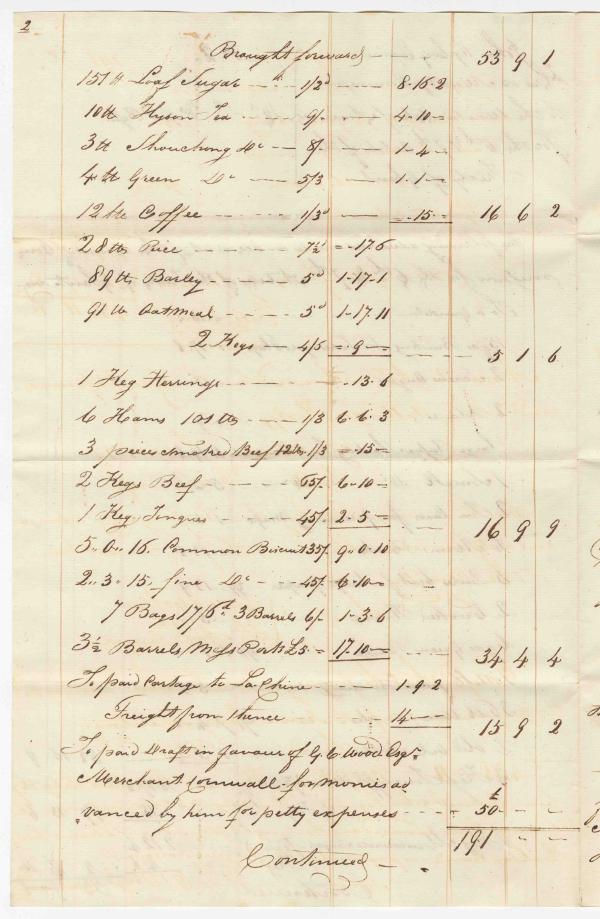 2
Brought forward - - 53 9 1
157 lb Loaf Sugar - - - 1/2d - - 8.16.2
10 lb Hyson Tea - - - 9/ - - 4.10 -
3 lb Shouchong Do - - 8/ - - 1 - 4 -
4 lb Green Do - - 5/3 - - 1 - 1 -
12 lbs Coffee - - - 1/3d - - - .15 - 16 6 2
28 lbs Rice - - - 7½d = - .17.6
89 lbs Barley - - - 5d 1 - 17 - 1
91 lb Oatmeal - - 5d 1 - 17. 11
2 Kegs - 4/6 = . 9 - - - - 5 1 6
1 Keg Herrings - - - - .13.6
6 Hams 101 lbs - - - 1/3 6.6.3
3 pieces smoked Beef 12lbs. 1/3 = . 15 =
2 Kegs Beef - - - 65/- 6 - 10 =
1 Keg Tongues - - 45/. 2 - 5 = - - - 16 9 9
5 ,, 0 ,, 16. Common Biscuit 35/. 9 ,, 0 . 10
2 ,, 3 ,, 15. fine Do - - 45/. 6 - 10 =
7 Bags 17/6d 3 Barrels 6/- 1 - 3 . 6
3½ Barrels Mess Pork £5 = 17.10 = - - - 34 4 4
To paid Cartage to La Chine - - - 1 - 9 2
Freight from thence 14 - - 15 9 2
To paid Draft in favour of G. C. Wood Esqr
Merchant Cornwall - for monies ad
"vanced by him for petty expenses - - - - £50 - - -
191 - -
Continued -